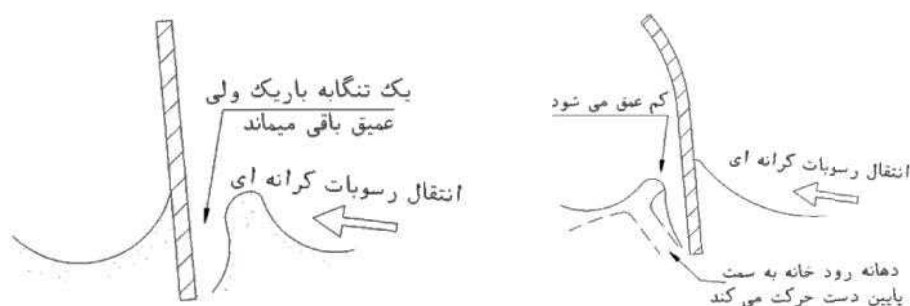 یک تنگابه باریک ولی
عمیق باقی میماند
انتقال رسوبات کرانه ای
کم عمق می شود
انتقال رسوبات کرانه ای
دهانه رود خانه به سمت
پایین دست حرکت می کند